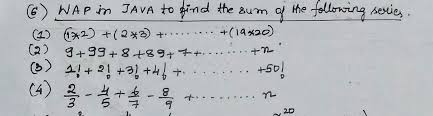 (6) WAP in JAVA to find the sum of the following series.
(1) (1x2) + (2x3) + ........ + (19x20)
(2) 9 + 99 + 8 + 89 + 7 + ........ + n
(3) 1! + 2! + 3! + 4! + ........ + 50!
(4) 2/3 - 4/5 + 6/7 - 8/9 + ........ n
20